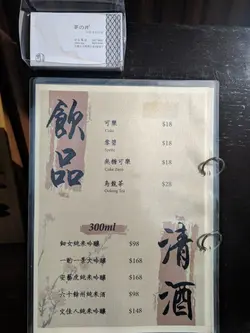 飲品
可樂 $18
Coke
$18
無糖可樂 $18
Coke Zero
烏龍茶 $20
Oolong Tea
300ml
清酒
純米吟釀 $98
一動一景大吟釀 $168
安藝虎純米吟釀 $168
六十餘州純米酒 $98
文佳人純米吟釀 $148